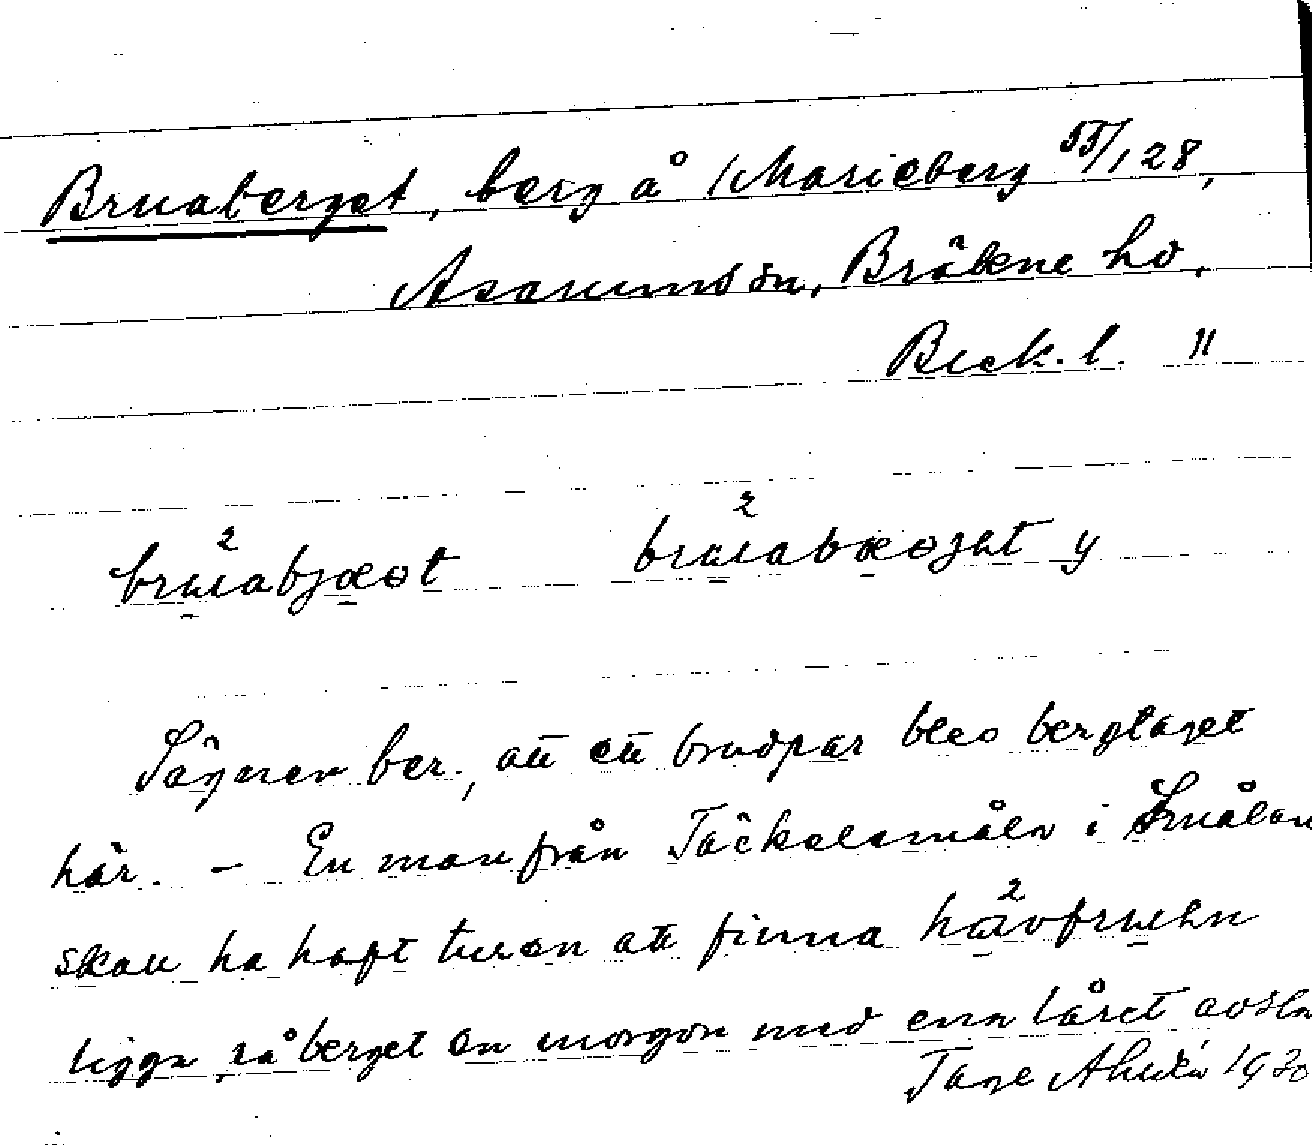 Bruaberget, berg å Marieberg 55/128,
Asarums sn, Bräkne hd,
Blek. l. "
bruabjæɷt bruabæɷjət y
Sägnen ber., att ett brudpar blev bergtaget
här. – En man från Täckelemåla i Smålan
skall ha haft turen att finna hávfruən
ligga på berget en morgon med ena låret avsla
Tage Ahldén 1930